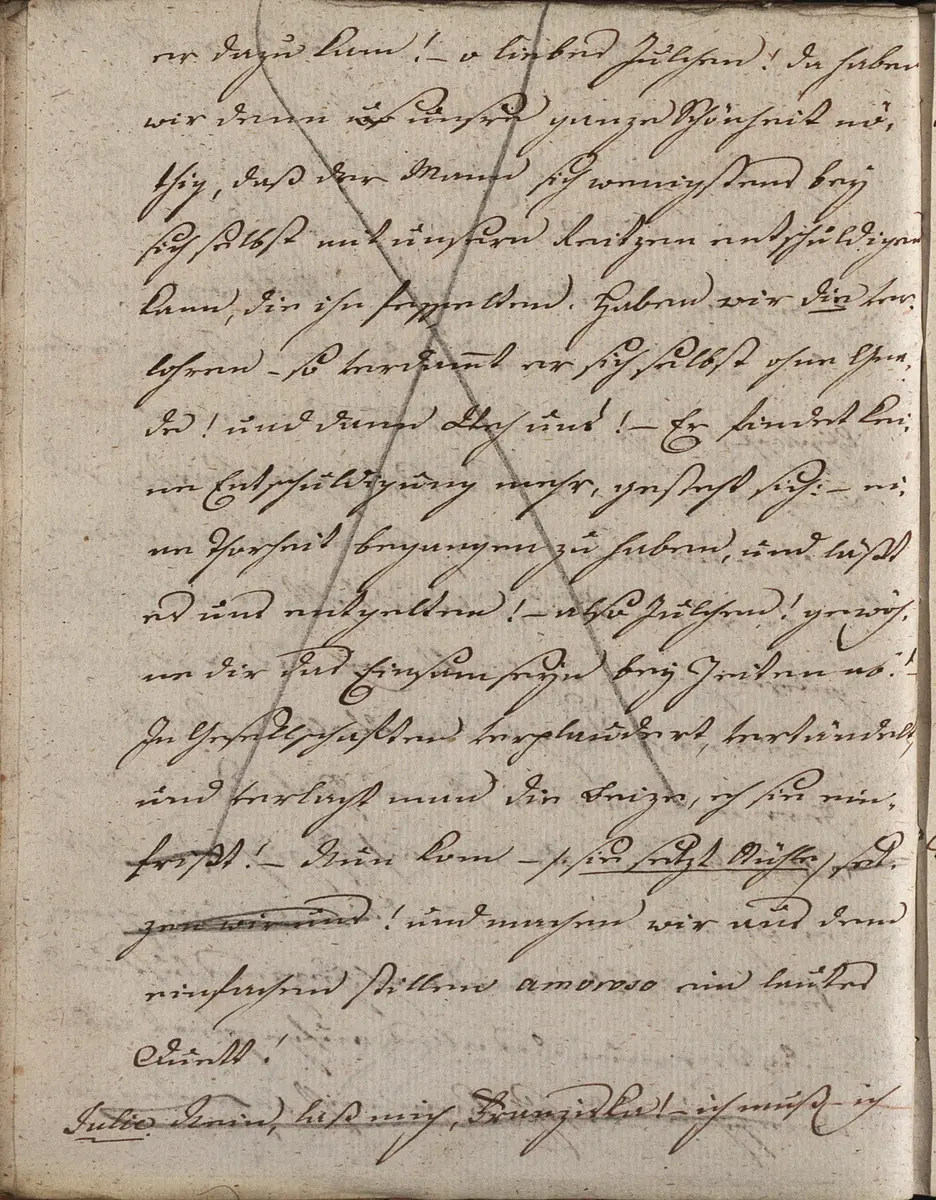 er dazu kam! – o liebes Julchen! da haben
wir denn unsre ganze Schönheit nö-
thig, daß der Mann sich wenigstens bey
sich selbst mit unsern Reitzen entschuldigen
kann, die ihn fesselten. Haben wir die ver-
lohren – so verdam̅t er sich selbst ohne Gna-
de! und dann Weh uns! – Er findet kei-
ne Entschuldigung mehr, gesteht sich: – ei-
ne Thorheit begangen zu haben, und läßt
es uns entgelten! – also Julchen! gewöh-
ne dir das Einsamseyn bey Zeiten ab! –
In Gesellschaften verplaudert, vertändelt,
und verlacht man die Reize, eh sie ein-
frißt! – Nun kom – /: sie setzt Stühle) set-
zen wir uns! und machen wir aus dem
einfachen stillen amoroso ein lautes
Duett!
Julie. Nein, laß mich, Franziska! – ich muß – ich